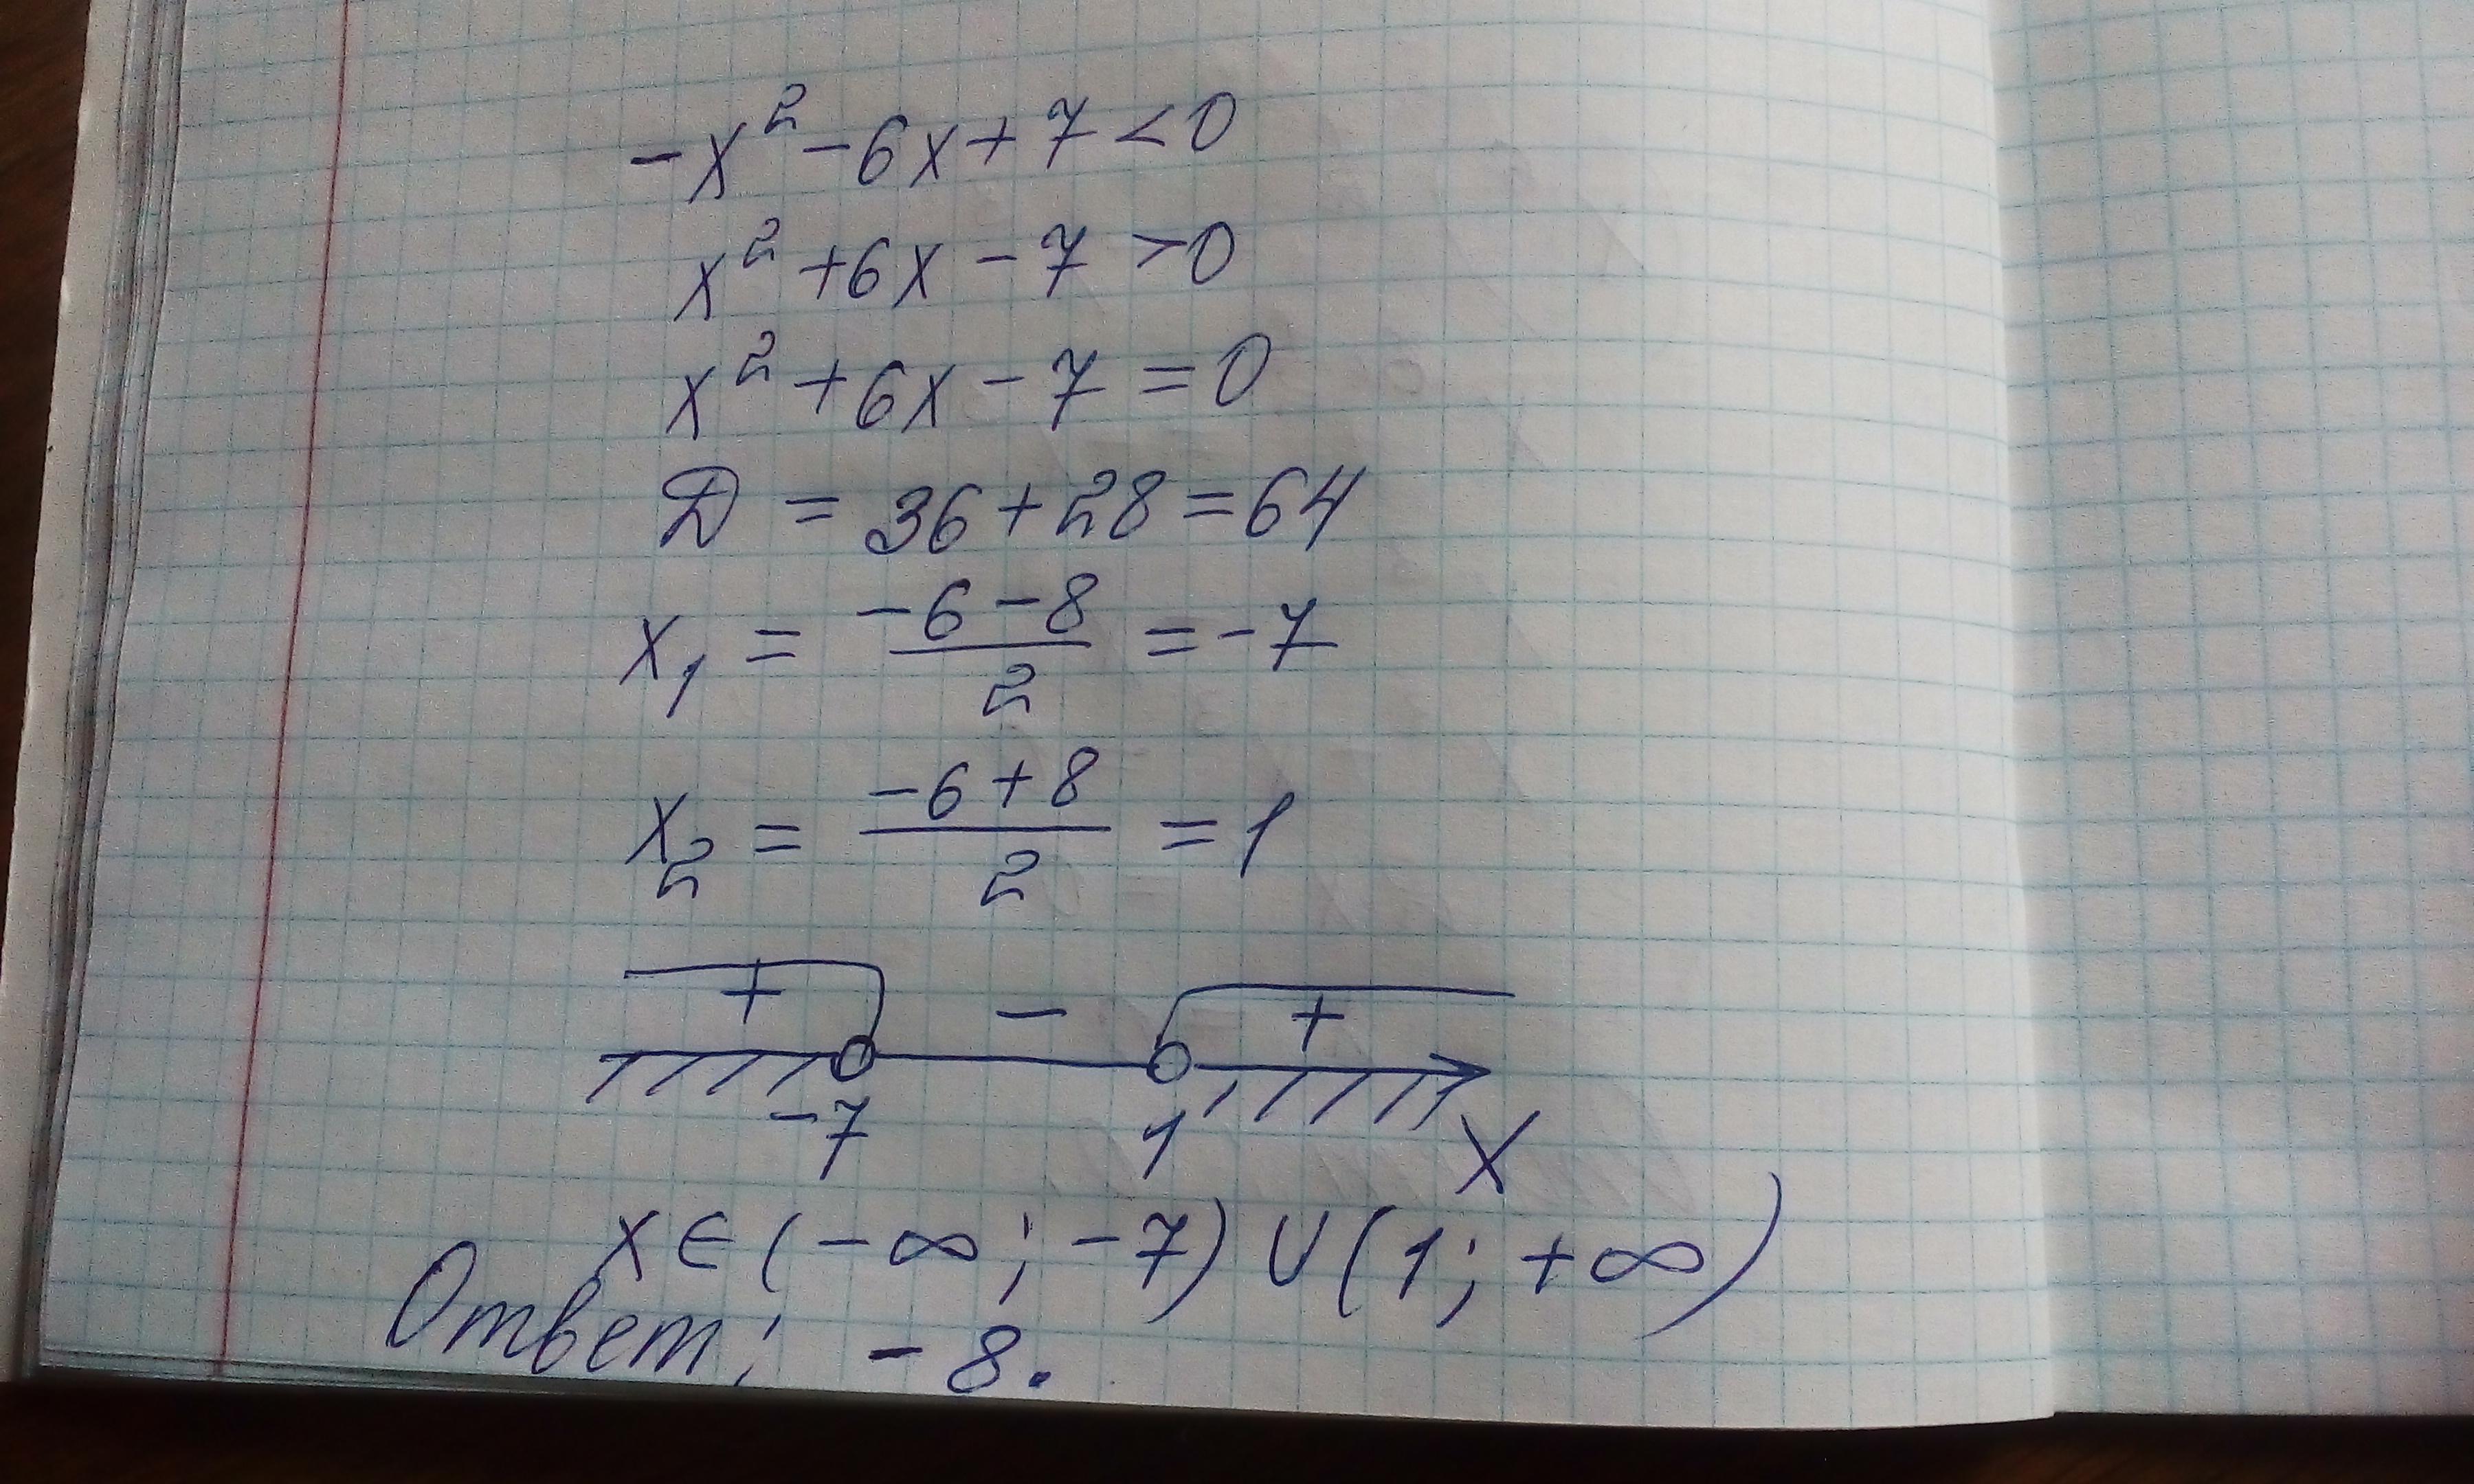 -x² - 6x + 7 < 0
x² + 6x - 7 > 0
x² + 6x - 7 = 0
D = 36 + 28 = 64
x₁ = (-6 - 8)/2 = -7
x₂ = (-6 + 8)/2 = 1
+ - +
-7 1 x
x ∈ (-∞; -7) ∪ (1; +∞)
Ответ: -8.